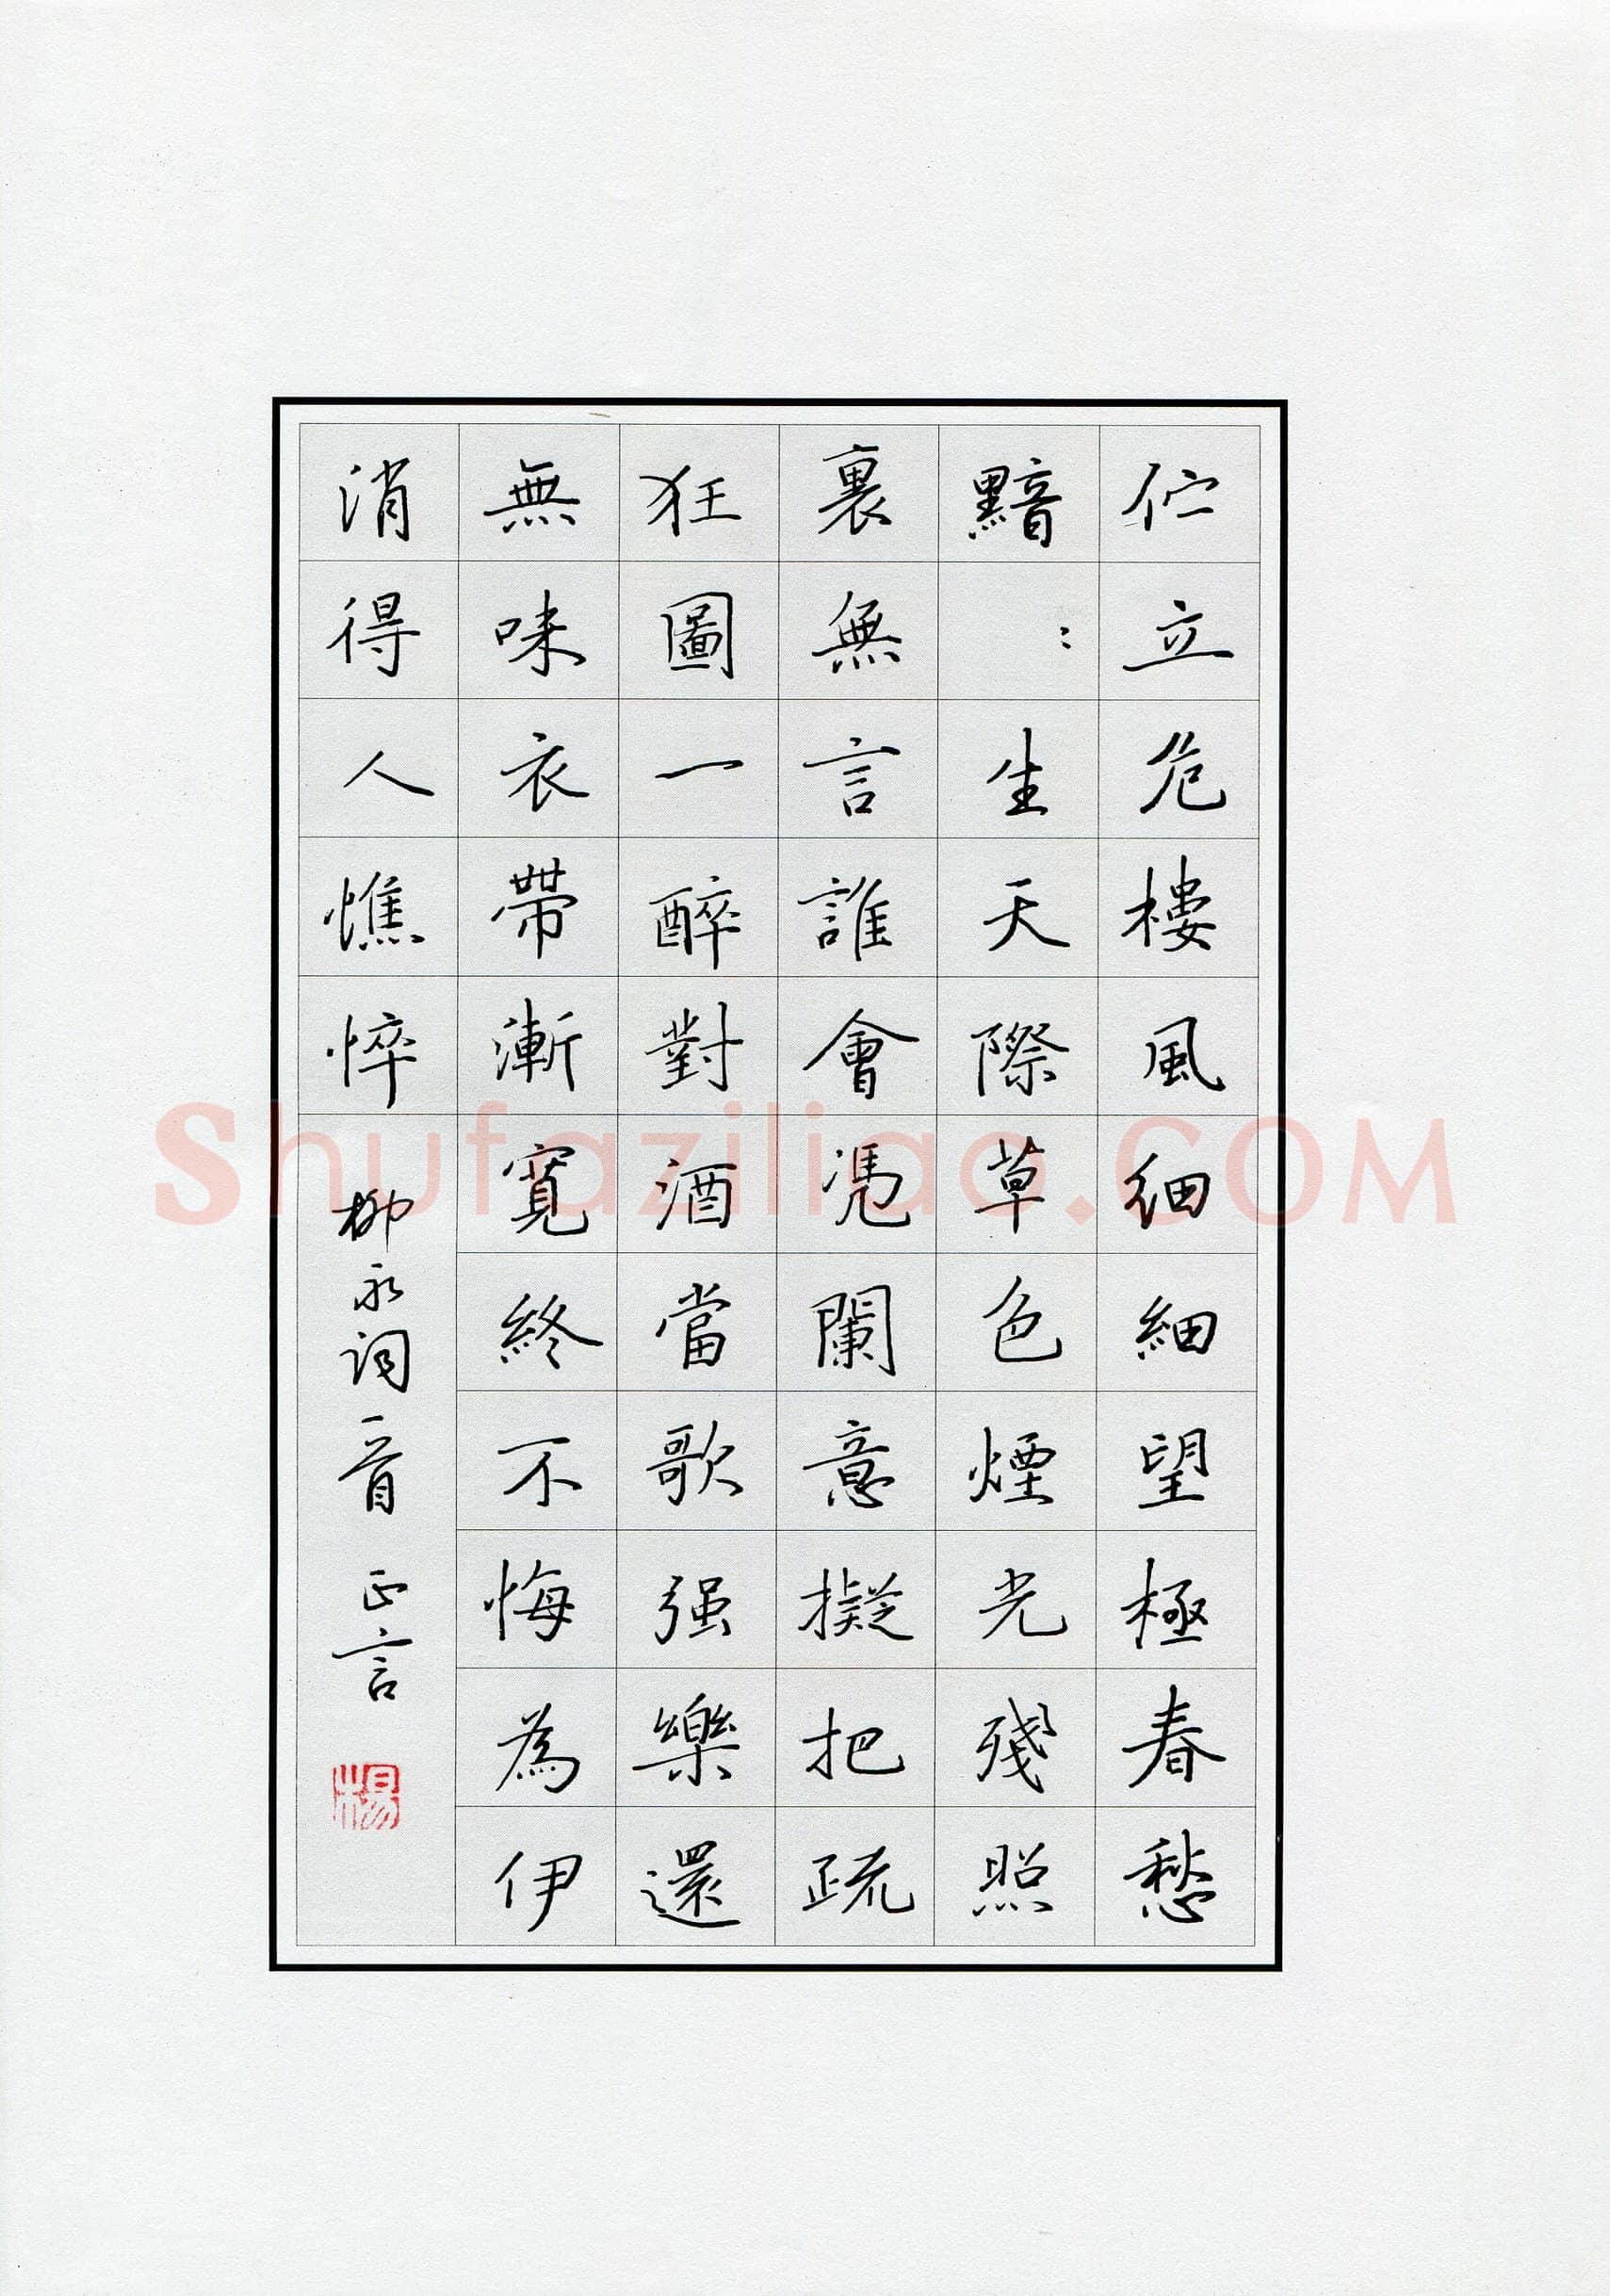 伫立危樓風细細望極春愁
黯：生天際草色煙光殘照
裏無言誰會憑闌意擬把疏
狂圖一醉對酒當歌强樂還
無味衣帶漸寬終不悔為伊
消得人憔悴 柳永词一首 正言
楊
Shufaziliao.COM